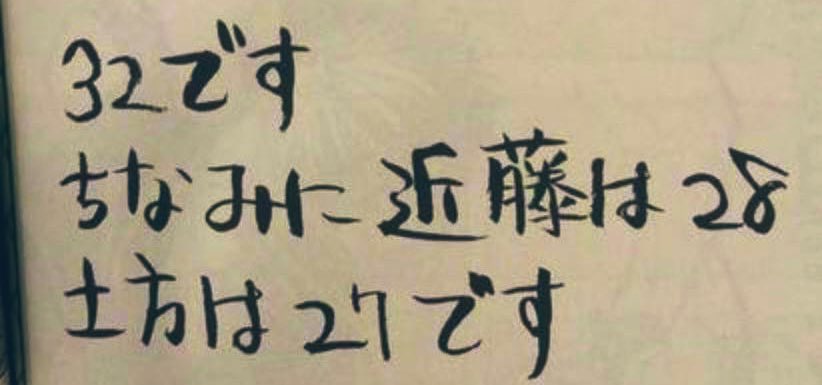 32です
ちなみに近藤は28
土方は27です